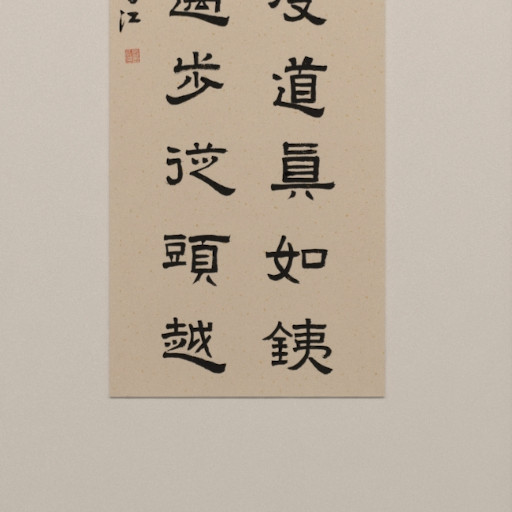 道眞如銕
邁步從頭越
江